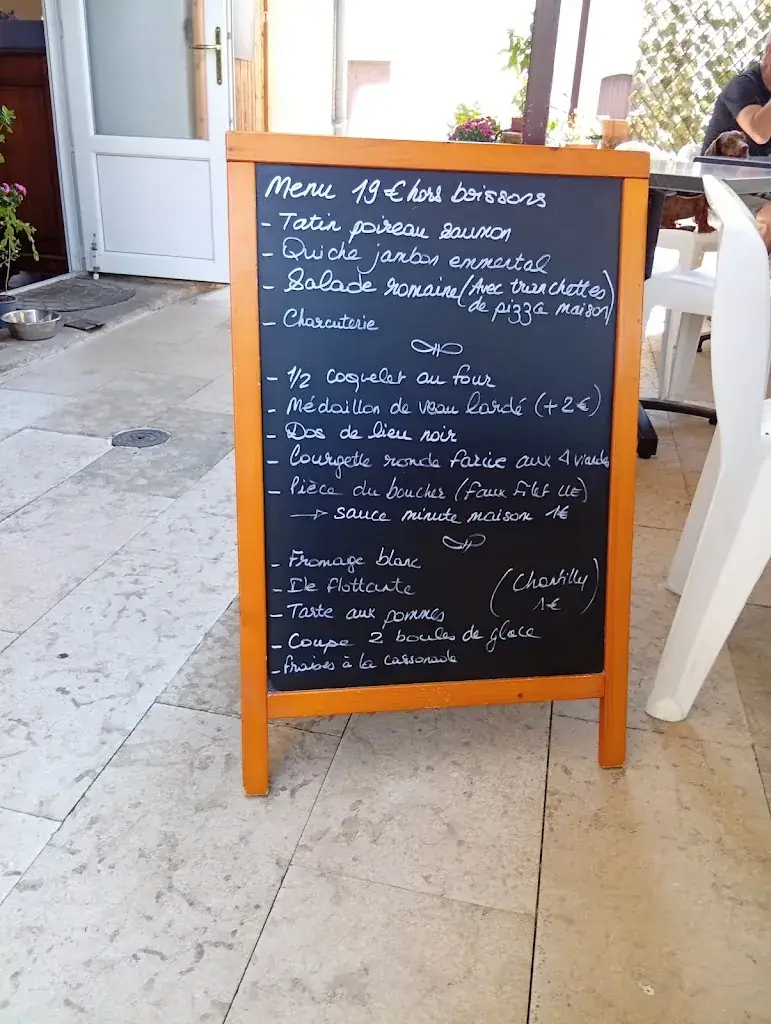 Menu 19 € hors boissons
- Tatin poireau saumon
- Quiche jambon emmental
- Salade romaine (Avec tranchettes
de pizza maison)
- Charcuterie
- 1/2 coquelet au four
- Médaillon de veau lardé (+ 2 €)
- Dos de lieu noir
- Courgette ronde farcie aux 4 viandes
- Pièce du boucher (faux filet UE)
→ sauce minute maison 1€
- Fromage blanc
- Ile flottante
- Tarte aux pommes
(Chantilly
1 €)
- Coupe 2 boules de glace
- fraises à la cassonade